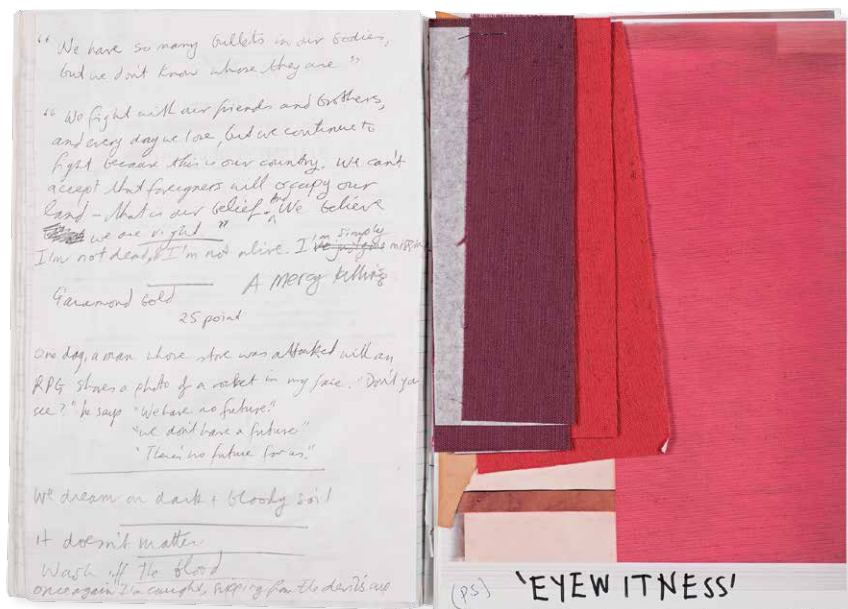 "We have so many bullets in our bodies,
but we don't know whose they are"
"We fight with our friends and brothers,
and every day we lose, but we continue to
fight because this is our country. We can't
accept that foreigners will occupy our
land – that is our belief. And We believe
we are right"
I'm not dead, I'm not alive. I'm simply missing
A Mercy Killing
Garamond bold
25 point
One day, a man whose store was attacked with an
RPG shoves a photo of a rocket in my face. "Don't you
see?" he says "We have no future."
"we don't have a future"
"There's no future for us."
We dream on dark + bloody soil
It doesn't matter
Wash off the blood
once again I'm caught, sipping from the devil's cup
(PS) 'EYEWITNESS'